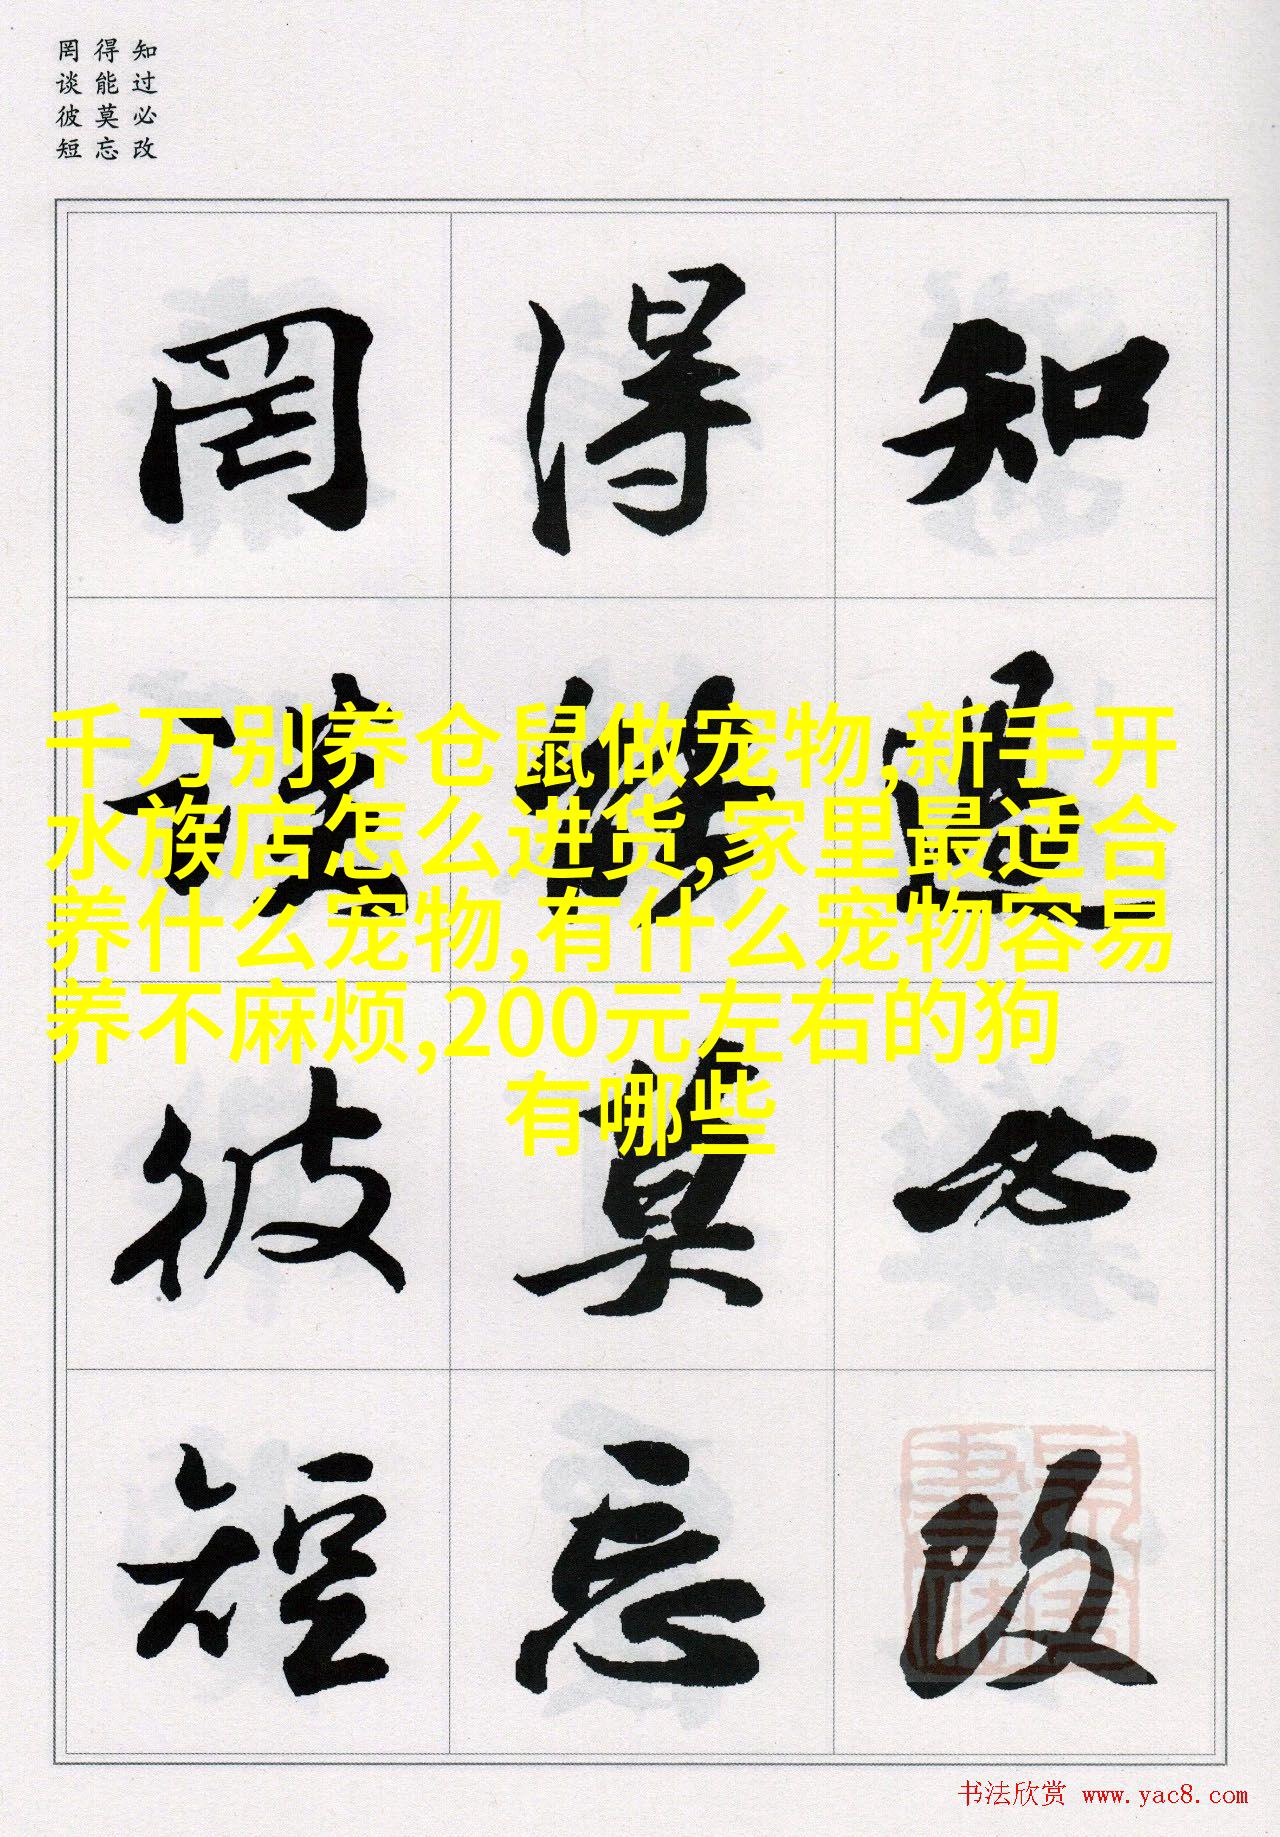 知过必改
得能莫忘
罔谈彼短
知过必改
得能莫忘
罔谈彼短
千万别养仓鼠做宠物,新手开
水族店怎么进货,家里最适合
养什么宠物,有什么宠物容易
养不麻烦,200元左右的狗
有哪些
书法欣赏 www.yac8.com